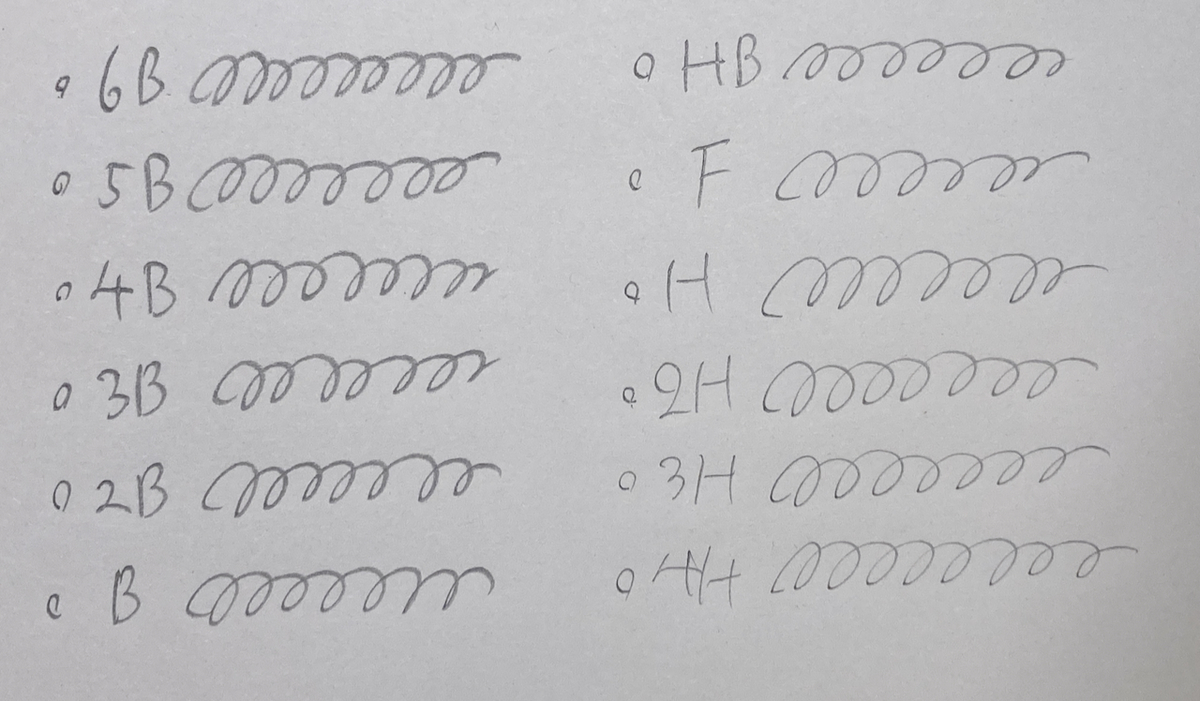 6B
5B
4B
3B
2B
B
HB
F
H
2H
3H
4H